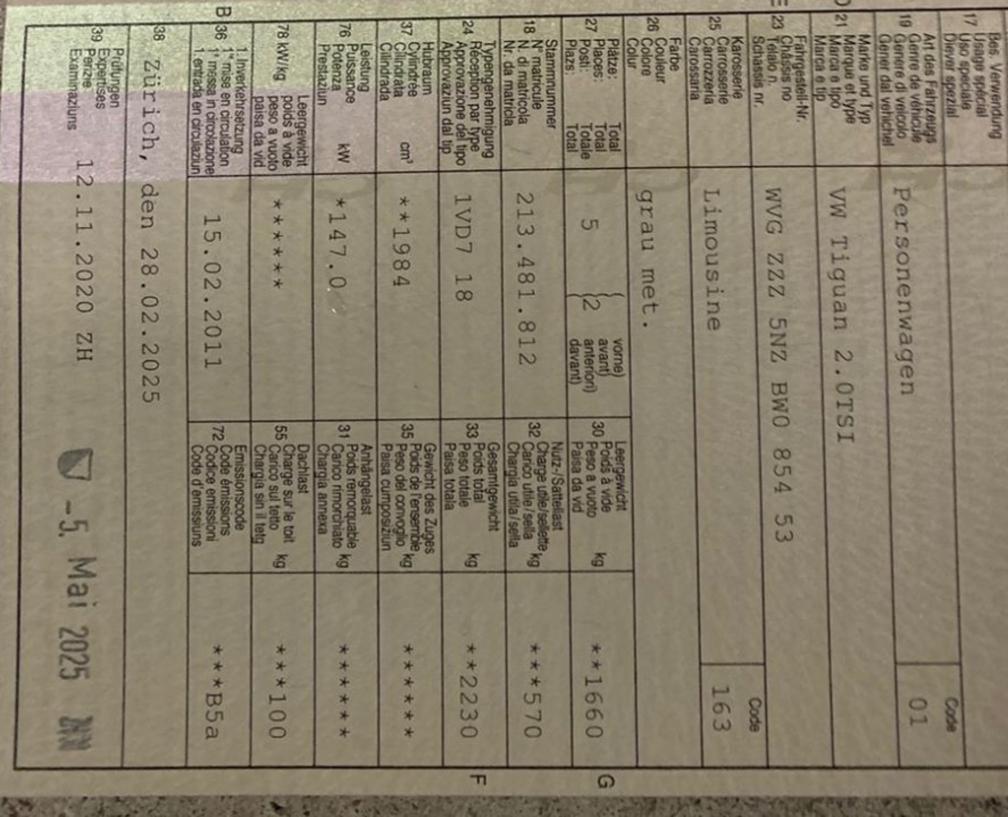 17 Bes. Verwendung
Usage spécial
Uso speciale
Diever spezial
19 Art des Fahrzeugs
Genre de véhicule
Genere di veicolo
Gener dal vehichel
Personenwagen
Code
01
D 21 Marke und Typ
Marque et type
Marca e tipo
Marca e tip
VW Tiguan 2.0TSI
E 23 Fahrgestell-Nr.
Châssis no
Telaio n.
Schassis nr.
WVG ZZZ 5NZ BW0 854 53
25 Karosserie
Carrosserie
Carrozzeria
Carossaria
Limousine
Code
163
26 Farbe
Couleur
Colore
Colur
grau met.
27 Plätze: Total
Places: Total
Posti: Totale
Plazs: Total
5 (2 vorne)
avant)
anteriori)
davant)
30 Leergewicht
Poids à vide
Peso a vuoto kg
Paisa da vid
**1660
G
18 Stammnummer
N° matricule
N. di matricola
Nr. da matricla
213.481.812
32 Nutz-/Sattellast
Charge utile/sellette kg
Carico utile/sella
Chargia utila/sella
***570
24 Typengenehmigung
Réception par type
Approvazione del tipo
Approvaziun dal tip
1VD7 18
33 Gesamtgewicht
Poids total kg
Peso totale
Paisa totala
**2230
F
37 Hubraum
Cylindrée cm³
Cilindrata
Cilindrada
**1984
35 Gewicht des Zuges
Poids de l'ensemble kg
Peso del convoglio
Paisa cumposiziun
*****
76 Leistung
Puissance kW
Potenza
Prestaziun
*147.0
31 Anhängelast
Poids remorquable kg
Carico rimorchiato
Chargia annexa
******
78 kW/kg Leergewicht
poids à vide
peso a vuoto
paisa da vid
******
55 Dachlast
Charge sur le toit kg
Carico sul tetto
Chargia sin il tetg
***100
B 36 1. Inverkehrsetzung
1re mise en circulation
1a messa in circolazione
1. entrada en circulaziun
15.02.2011
72 Emissionscode
Code émissions
Codice emissioni
Code d'emissiuns
***B5a
38 Zürich, den 28.02.2025
39 Prüfungen
Expertises
Perizie
Examinaziuns
12.11.2020 ZH
-5. Mai 2025 NN